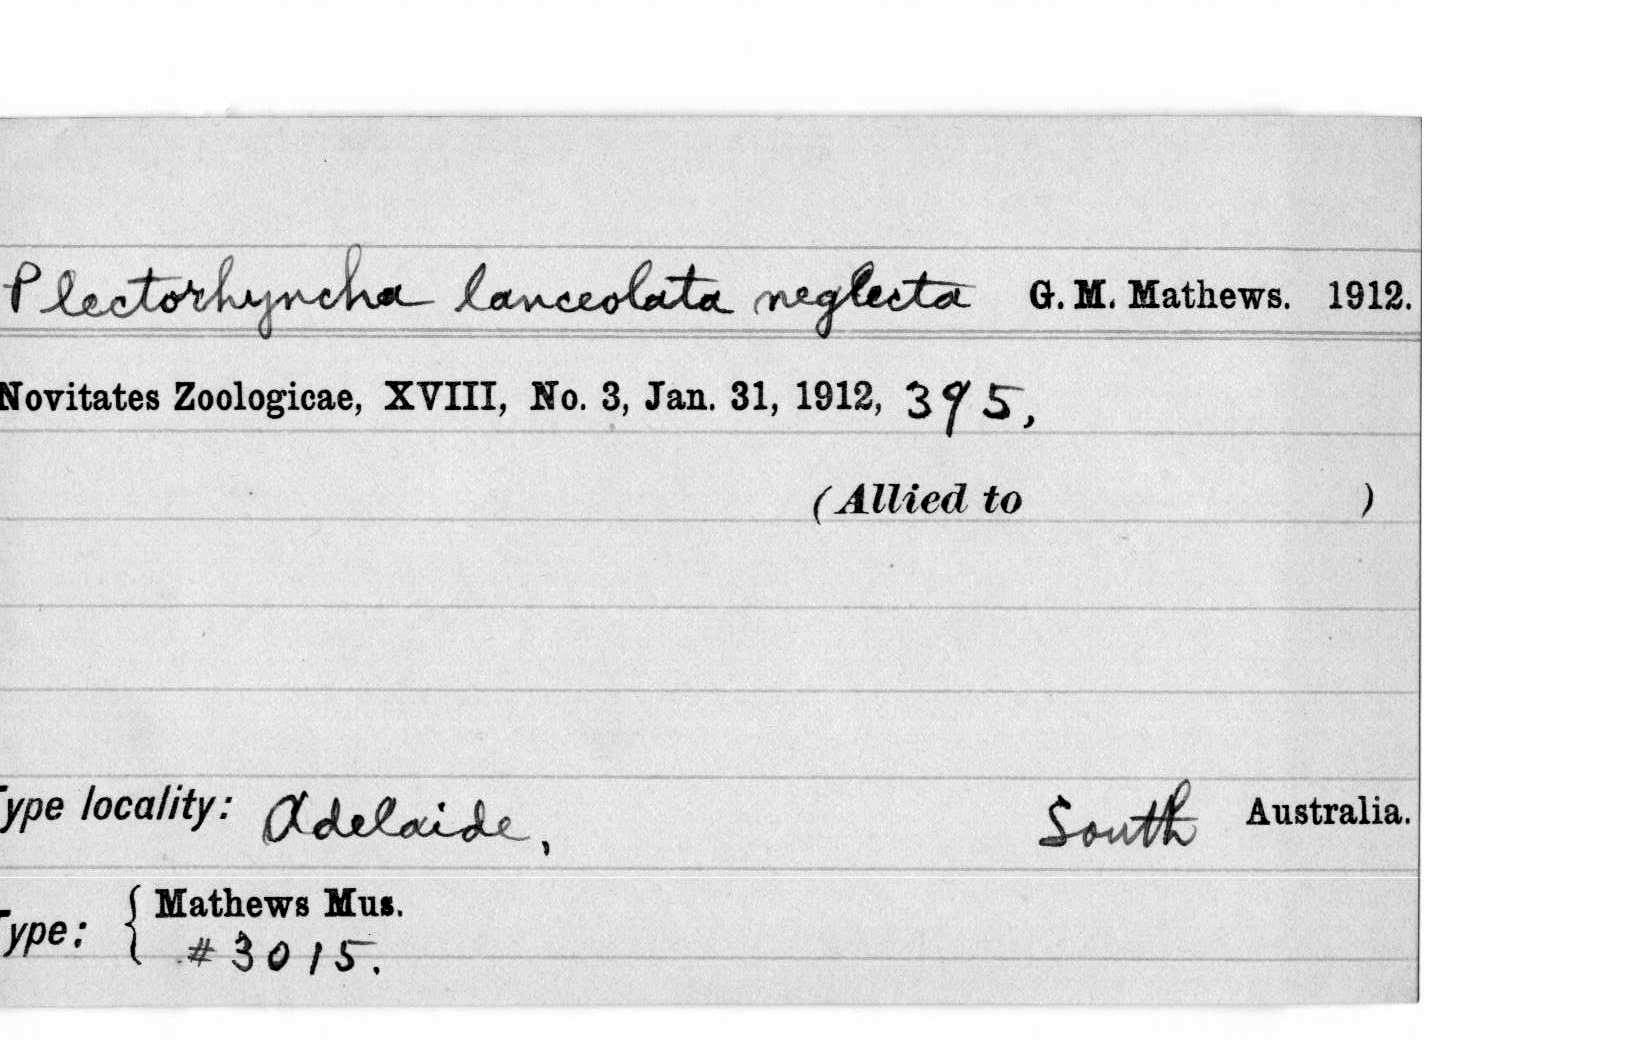 Plectorhyncha lanceolata neglecta G. M. Mathews. 1912.
Novitates Zoologicae, XVIII, No. 3, Jan. 31, 1912, 395,
(Allied to )
Type locality: Adelaide, South Australia.
Type: { Mathews Mus.
#3015.